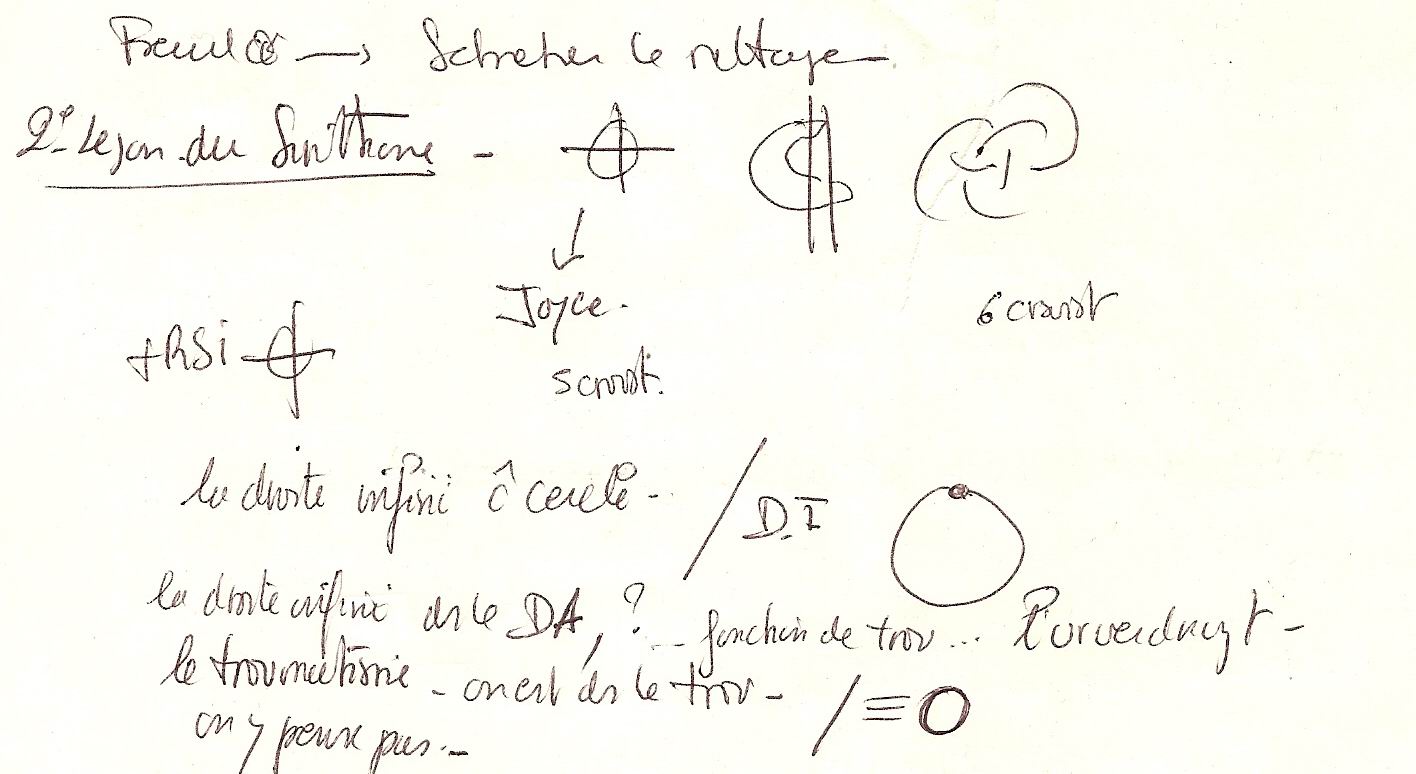 Freud → Schreber le nettoyage
2e Leçon du Sinthome -
Joyce.
6 croist
+RSI
5 croist.
la droite infinie ĉ cercle -
D.I
la droite infinie ds le DA, ? ... fonction de trou... l'urverdrängt -
le troumatisme - on est ds le trou - / ≡ O
on y pense pas. -